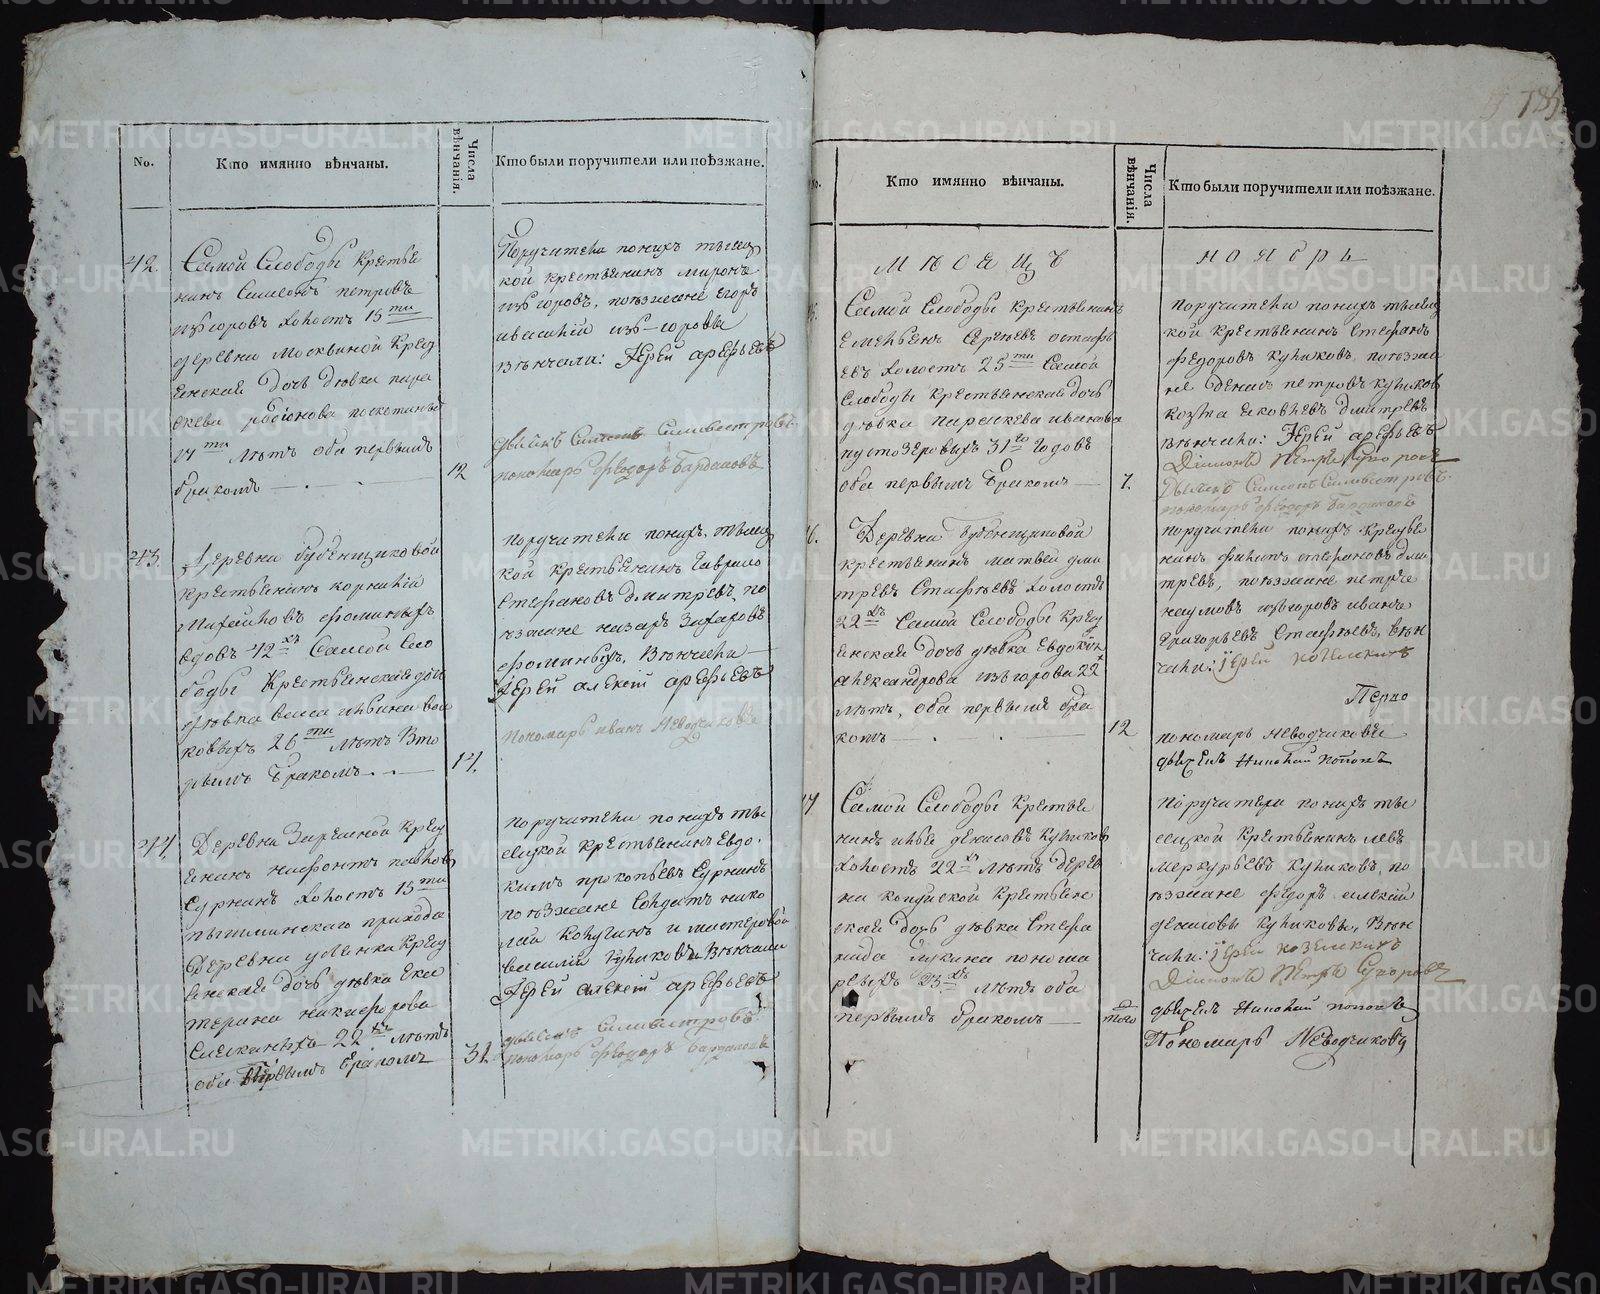 No.
Кто имянно вѣнчаны.
Числа вѣнчанія.
Кто были поручители или поѣзжане.
42.
Самой Слободы Крестья
нинъ Симеонъ петровъ
изгоровъ холостъ 15ти
деревни Москвиной Крест
янская дочь девка пара
скева
17ти летъ оба первымъ
бракомъ
12
Поручители по нихъ
кой крестьянинъ миронъ
изгоровъ, поезжане Егоръ
ивасилій изгоровы
венчали: Іерей арефьевъ
дьячекъ Симеонъ Силивестровъ
пономарь федоръ
43.
Деревни Губенщиковой
крестьянинъ корнилій
Михайловъ фоминыхъ
вдовъ 42хъ Самой Сло
боды Крестьянская дочь
девка васса ильина вои
ковыхъ 26ти летъ Вто
рымъ бракомъ
17.
поручители по нихъ
кой крестьянинъ Гаврило
Стефановъ дмитревъ, по
езжане назаръ Захаровъ
фоминыхъ, Венчали
Іерей алексій арефьевъ
пономарь иванъ Неводчиковъ
44.
Деревни Зырянской Крест
янинъ нифонтъ павловъ
Суринъ холостъ 15ти
пышминскаго прихода
Деревни Крест
янская дочь девка Ека
терина никифорова
22хъ летъ
оба первымъ бракомъ
31
поручители по нихъ
кой крестьянинъ Евдо
кимъ прокопьевъ Суринъ
поезжане солдатъ нико
лай и мастеровой
василій Куликовъ Венчали
Іерей алексій арефьевъ
дьячекъ Силивестровъ
пономарь федоръ
Кто имянно вѣнчаны.
Числа вѣнчанія.
Кто были поручители или поѣзжане.
мѣсяцъ
ноябрь
Самой Слободы крестьянинъ
Емельянъ Сергеевъ остафь
евъ холостъ 25ти Самой
Слободы крестьянская дочь
девка параскева иванова
пустозеровыхъ 31го годовъ
оба первымъ бракомъ
7.
поручители по нихъ
кой крестьянинъ Стефанъ
федоровъ куликовъ, поезжа
не денисъ петровъ куликовъ
козма яковлевъ дмитревъ
венчали: Іерей арефьевъ
Діаконъ Петръ Сухоровъ
Дьячекъ Симеонъ Силивестровъ
пономарь федоръ
6.
Деревни Губенщиковой
крестьянинъ матвей дми
тревъ Стафеевъ холостъ
22хъ Самой Слободы Крест
янская дочь девка Евдокія
александрова изгорова 22хъ
летъ, оба первымъ бра
комъ
12
поручители по нихъ крестья
нинъ филипъ стефановъ дми
тревъ, поезжане петръ
наумовъ изгоровъ иванъ
григорьевъ Стафеевъ, вен
чали: іерей козелскихъ
Петръ
пономарь Неводчиковъ
дьячекъ Николай поповъ
Самой Слободы Крестья
нинъ илья денисовъ Куликовъ
холостъ 22хъ летъ Дерев
ни Крестьян
ская дочь девка Стефа
нида лукина понома
ревыхъ 23хъ летъ оба
первымъ бракомъ
поручители по нихъ
кой Крестьянинъ левъ
меркурьевъ куликовъ, по
езжане федоръ алексій
денисовы куликовы, Вен
чали: іерей козелскихъ
Діаконъ Петръ Сухоровъ
дьячекъ Николай поповъ
Пономарь Неводчиковъ